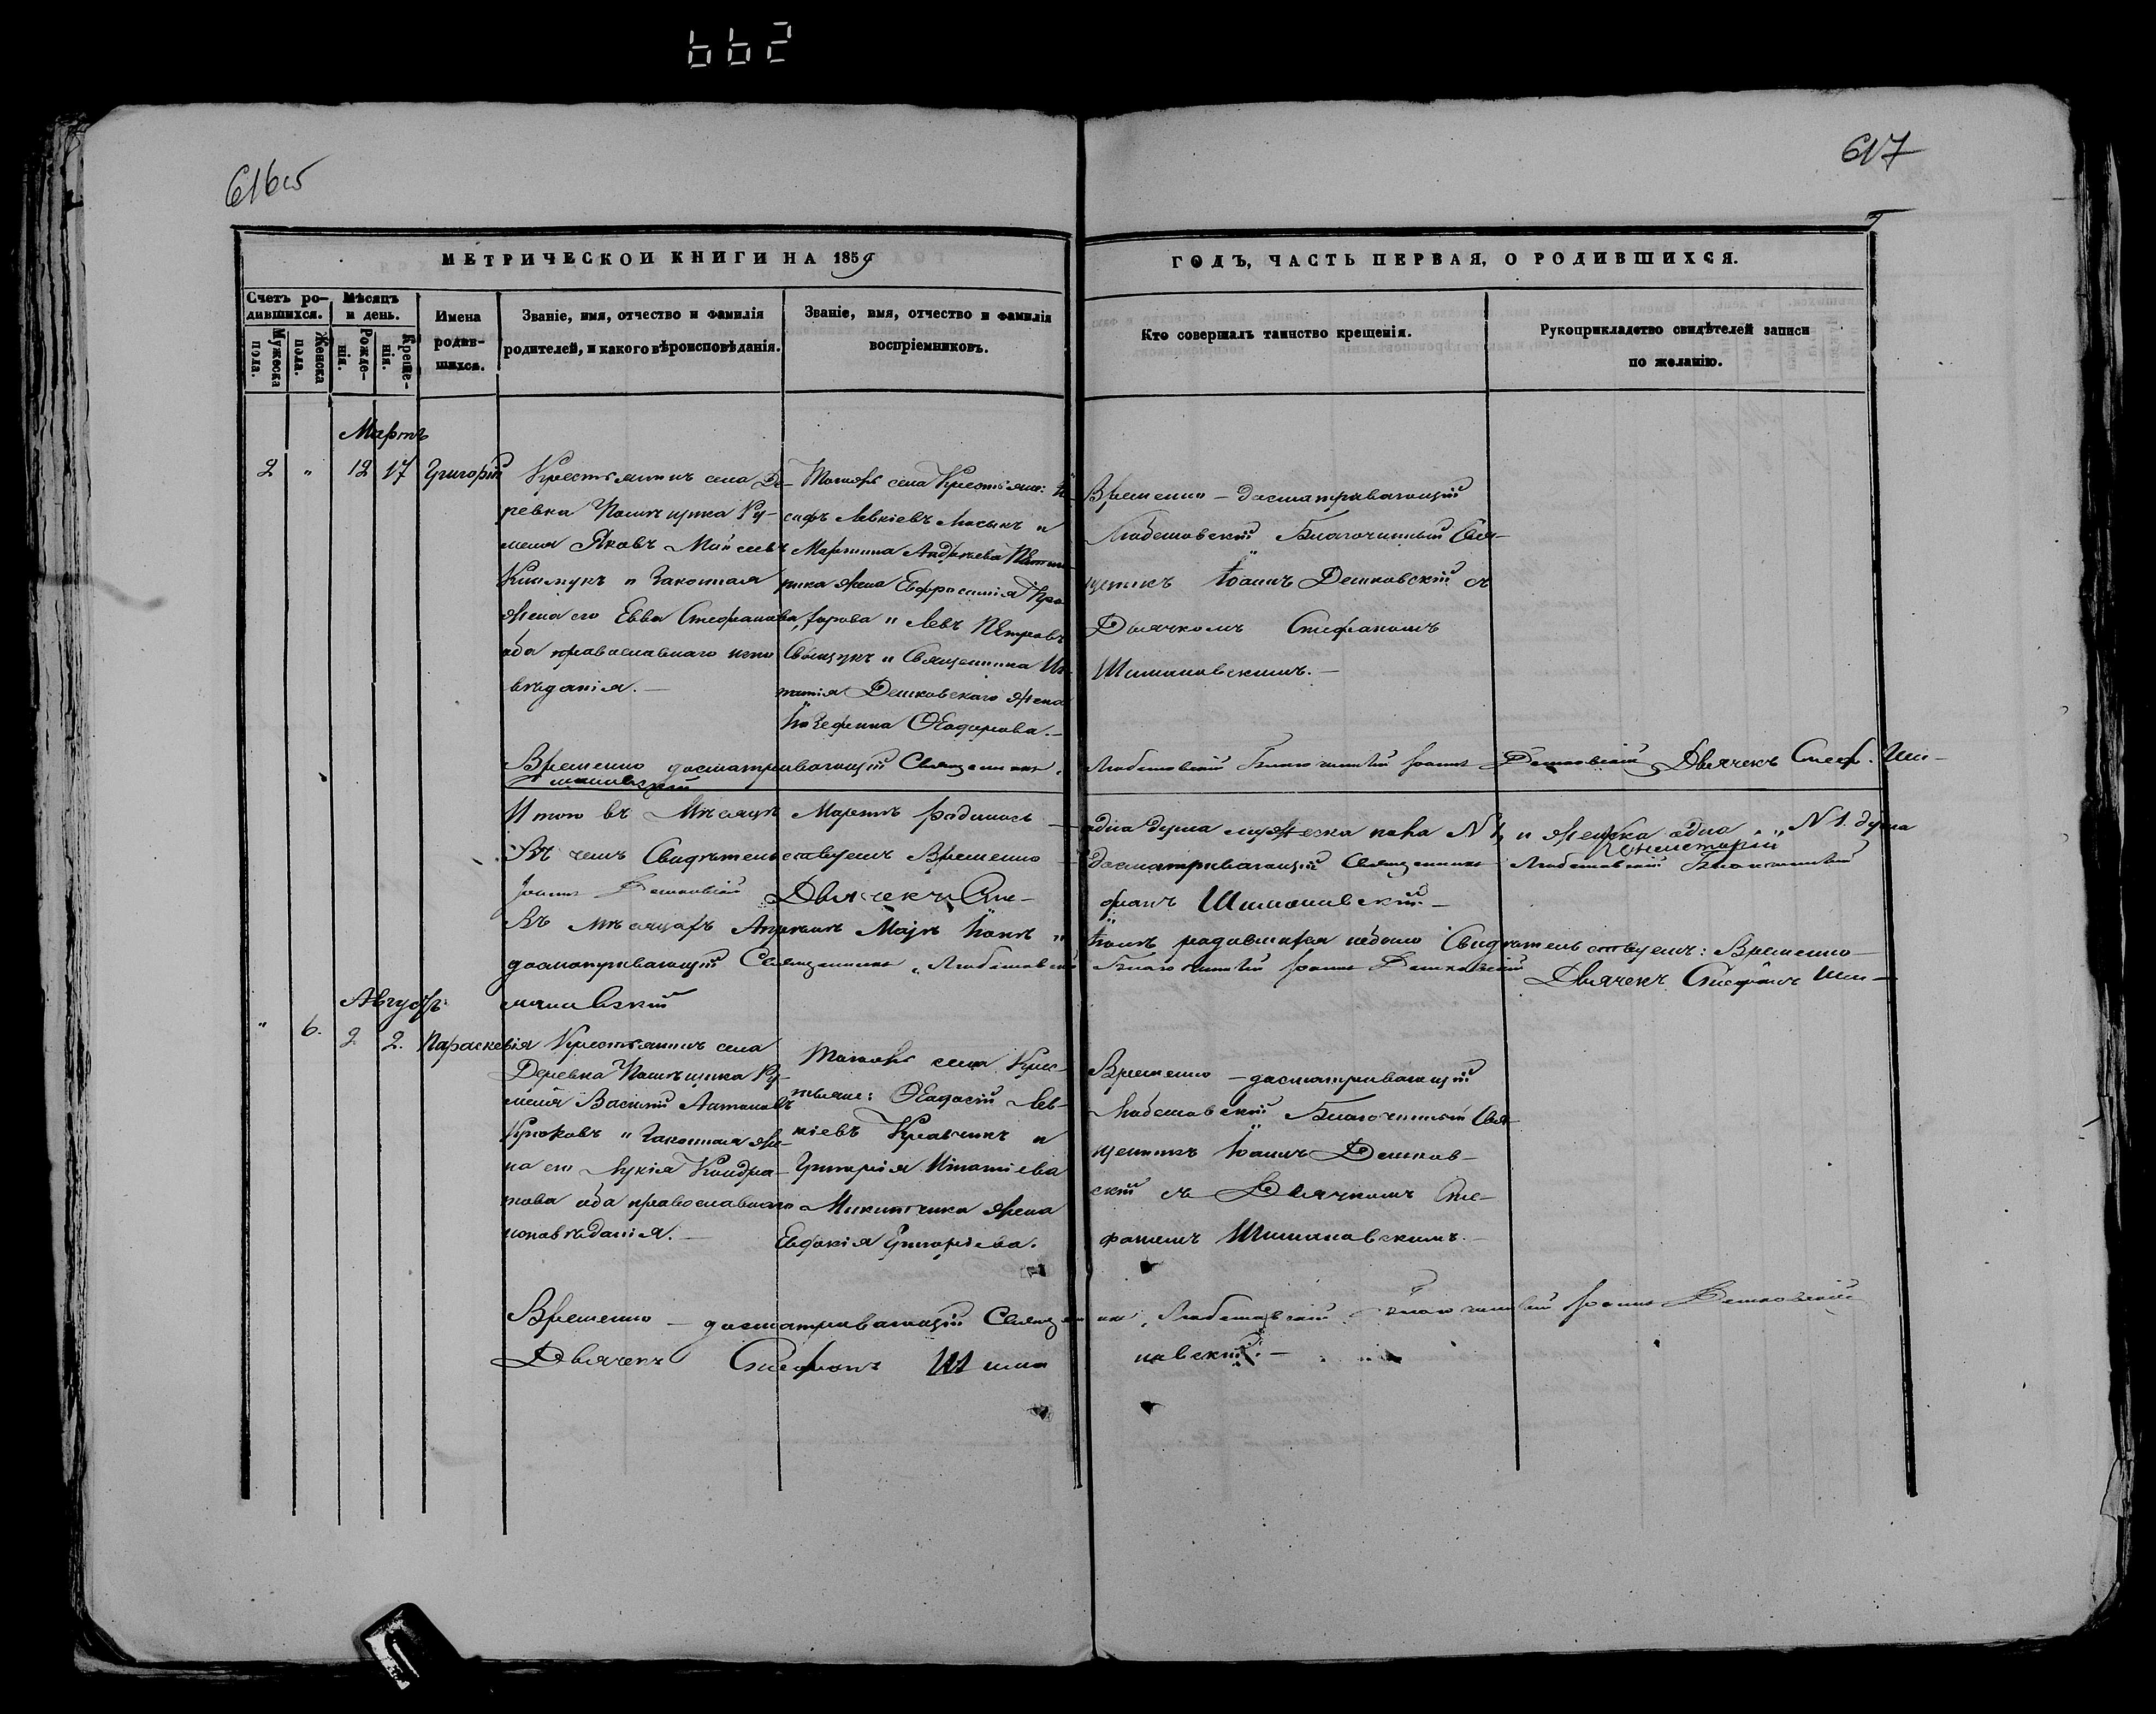 662
616об
617
МЕТРИЧЕСКОЙ КНИГИ НА 1859
ГОДЪ, ЧАСТЬ ПЕРВАЯ, О РОДИВШИХСЯ.
Счетъ ро-
дившихся.
Мужеска
пола.
Женска
пола.
Мѣсяцъ
и день.
Рожде-
нія.
Креще-
нія.
Имена
родив-
шихся.
Званіе, имя, отчество и фамилія
родителей, и какого вѣроисповѣданія.
Званіе, имя, отчество и фамилія
воспріемниковъ.
Кто совершалъ таинство крещенія.
Рукоприкладство свидѣтелей записи
по желанію.
Мартъ
2 " 12 17 Григорій
Крестьянинъ села Де-
ревка Помѣщика Ку-
меля Яковъ Моисеевъ
и Законная
Жена его Евва Стефанова,
оба православнаго испо
вѣданія.—
Тогожъ села Крестьяне:
Левкіевъ и
Мартина
жена Евфросинія
и Левъ Петровъ
и Священника Иг-
натія Дешковскаго жена
Іозефина Ѳеодорова.—
Временно – досматривающій
Любешовскій Благочинный Свя-
щенникъ Іоаннъ Дешковскій съ
Дьячкомъ Стефаномъ
Шимановскимъ.—
Временно досматривающій Священникъ, Любешовскій Благочинный Іоаннъ Дешковскій Дьячекъ Стеф. Ши-
мановскій
Итого въ Мѣсяцѣ Мартѣ родилось — одна душа мужеска пола N 1, и женска одна N 1. душа
Въ чемъ Свидѣтельствуемъ Временно – досматривающій Священникъ Любешовскій Благочинный
Іоаннъ Дешковскій Дьячекъ Сте- фанъ Шимановскій—
Въ мѣсяцахъ Апрѣлѣ Маіѣ Іюнѣ и Іюлѣ родившихся небыло Свидѣтельствуемъ: Временно—
досматривающій Священникъ, Любешовскій Благочинный Іоаннъ Дешковскій Дьячекъ Стефанъ Ши—
мановскій
Августъ:
" 6. 2 2. Параскевія
Крестьянинъ села
Деревка Помѣщика Ку-
меля Василій Антоновъ
и Законная же-
на его Лукія Кондра-
това оба православнаго
исповѣданія.—
Тогожъ села Крес-
тьяне: Ѳеодосій Лев-
кіевъ Кравчикъ и
Григорія Игнатіева
жена
Евдокія Григоріева.
Временно – досматривающій
Любешовскій Благочинный Свя-
щенникъ Іоаннъ Дешков-
скій съ Дьячкомъ Сте-
фаномъ Шимановскимъ.—
Временно – досматривающій Священникъ, Любешовскій Благочинный Іоаннъ Дешковскій
Дьячекъ Стефанъ Шима новскій.—